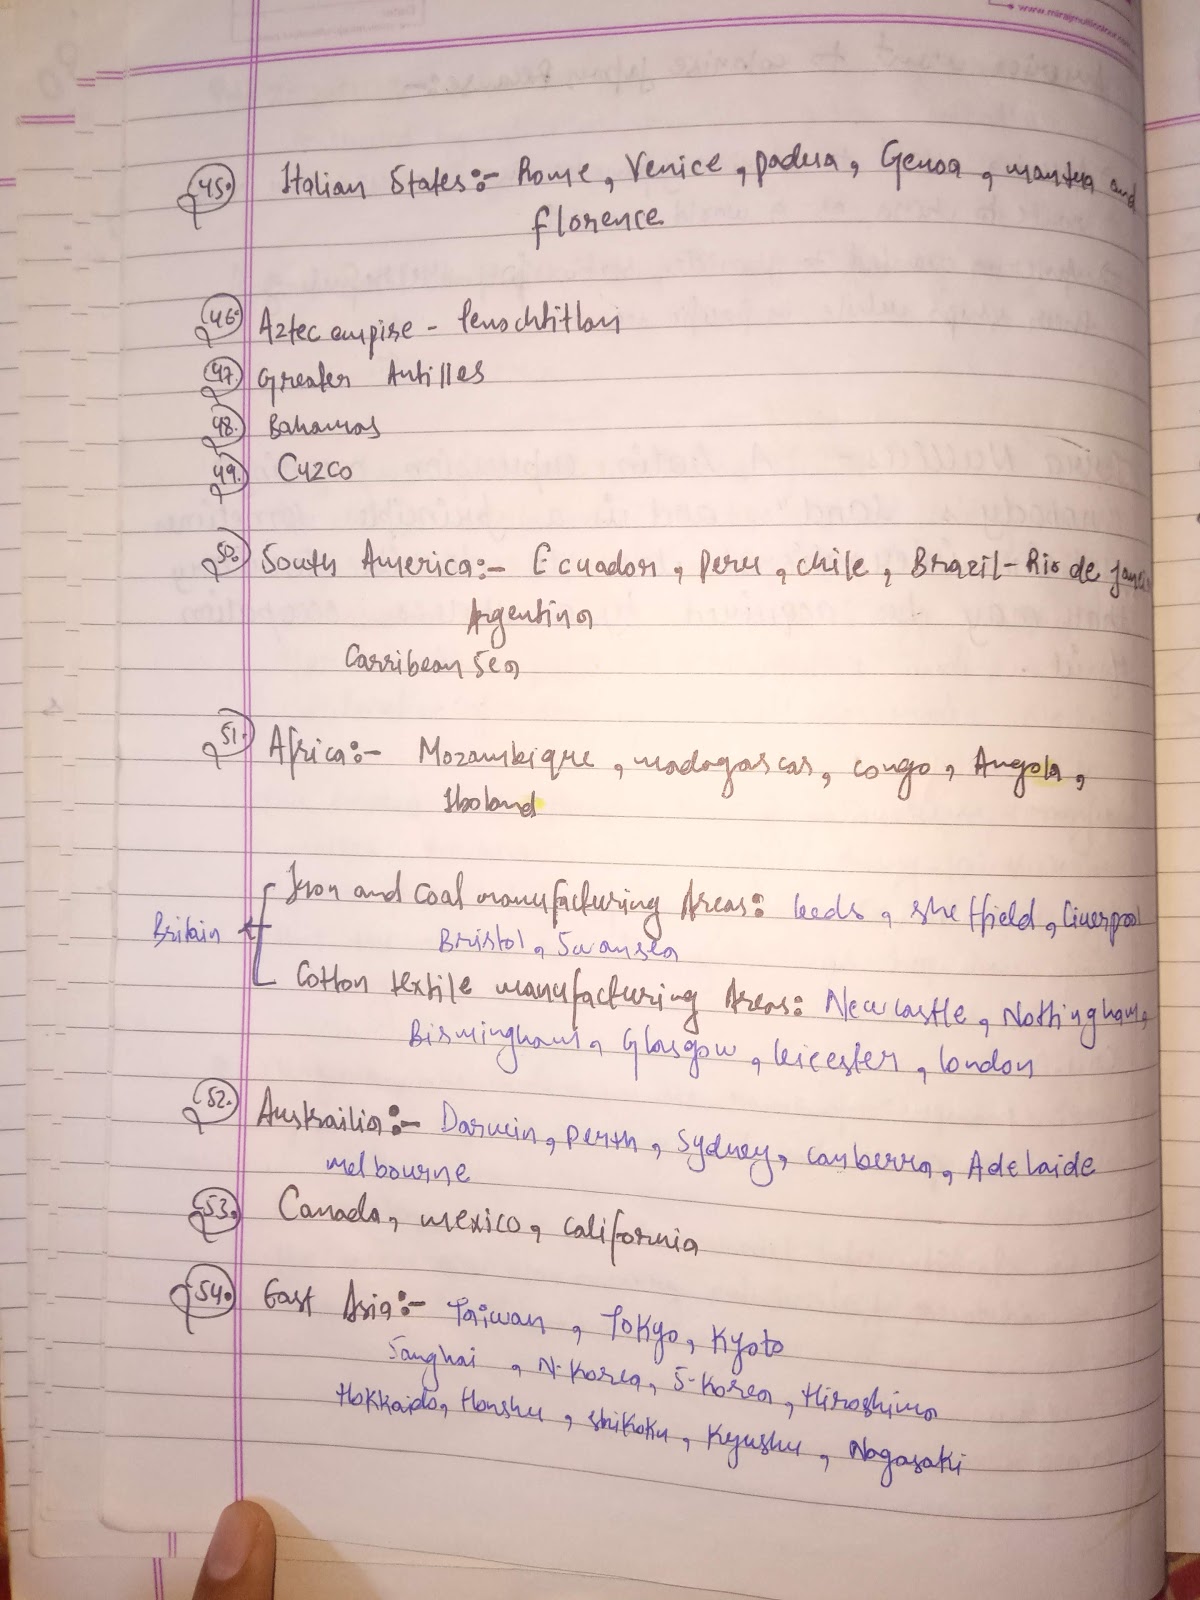 www.mirajmulticolour.com
45. Italian States:- Rome, Venice, Padua, Genoa, Mantua and
florence
46. Aztec empire - Tenochtitlan
47. Greater Antilles
48. Bahamas
49. Cuzco
50. South America:- Ecuador, Peru, chile, Brazil-Rio de
Argentina
Carribean Sea
51. Africa:- Mozambique, madagascar, congo, Angola,
Iboland
Iron and Coal manufacturing Areas: leeds, sheffield, Liverpool
Britain
Bristol, Swansea
Cotton textile manufacturing Areas: Newcastle, Nottingham,
Birmingham, Glasgow, leicester, london
52. Austrailia:- Darwin, Perth, Sydney, Canberra, Adelaide
melbourne
53. Canada, mexico, california
54. East Asia:- Taiwan, Tokyo, Kyoto
Sanghai, N-Korea, S-Korea, Hiroshima
Hokkaido, Honshu, shikoku, Kyushu, Nagasaki